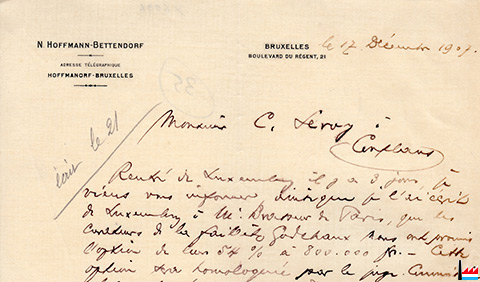 N. HOFFMANN-BETTENDORF
ADRESSE TÉLÉGRAPHIQUE
HOFFMANORF-BRUXELLES
BRUXELLES le 17 Décembre 1907.
BOULEVARD DU RÉGENT, 21
écrit le 21
Monsieur C. Leroy à
Conflans
Rentré de Luxembourg il y a 3 jours je
viens vous informer ainsi que je l'ai écrit
de Luxembourg à Mr. de Paris, que les
curateurs de la faillite Godchaux nous ont promis
l'option de leurs 54 % à 800.000 fr. – Cette
option sera homologuée par le juge